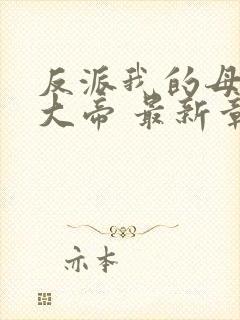 反派我的母
大帝 最新章
亦本